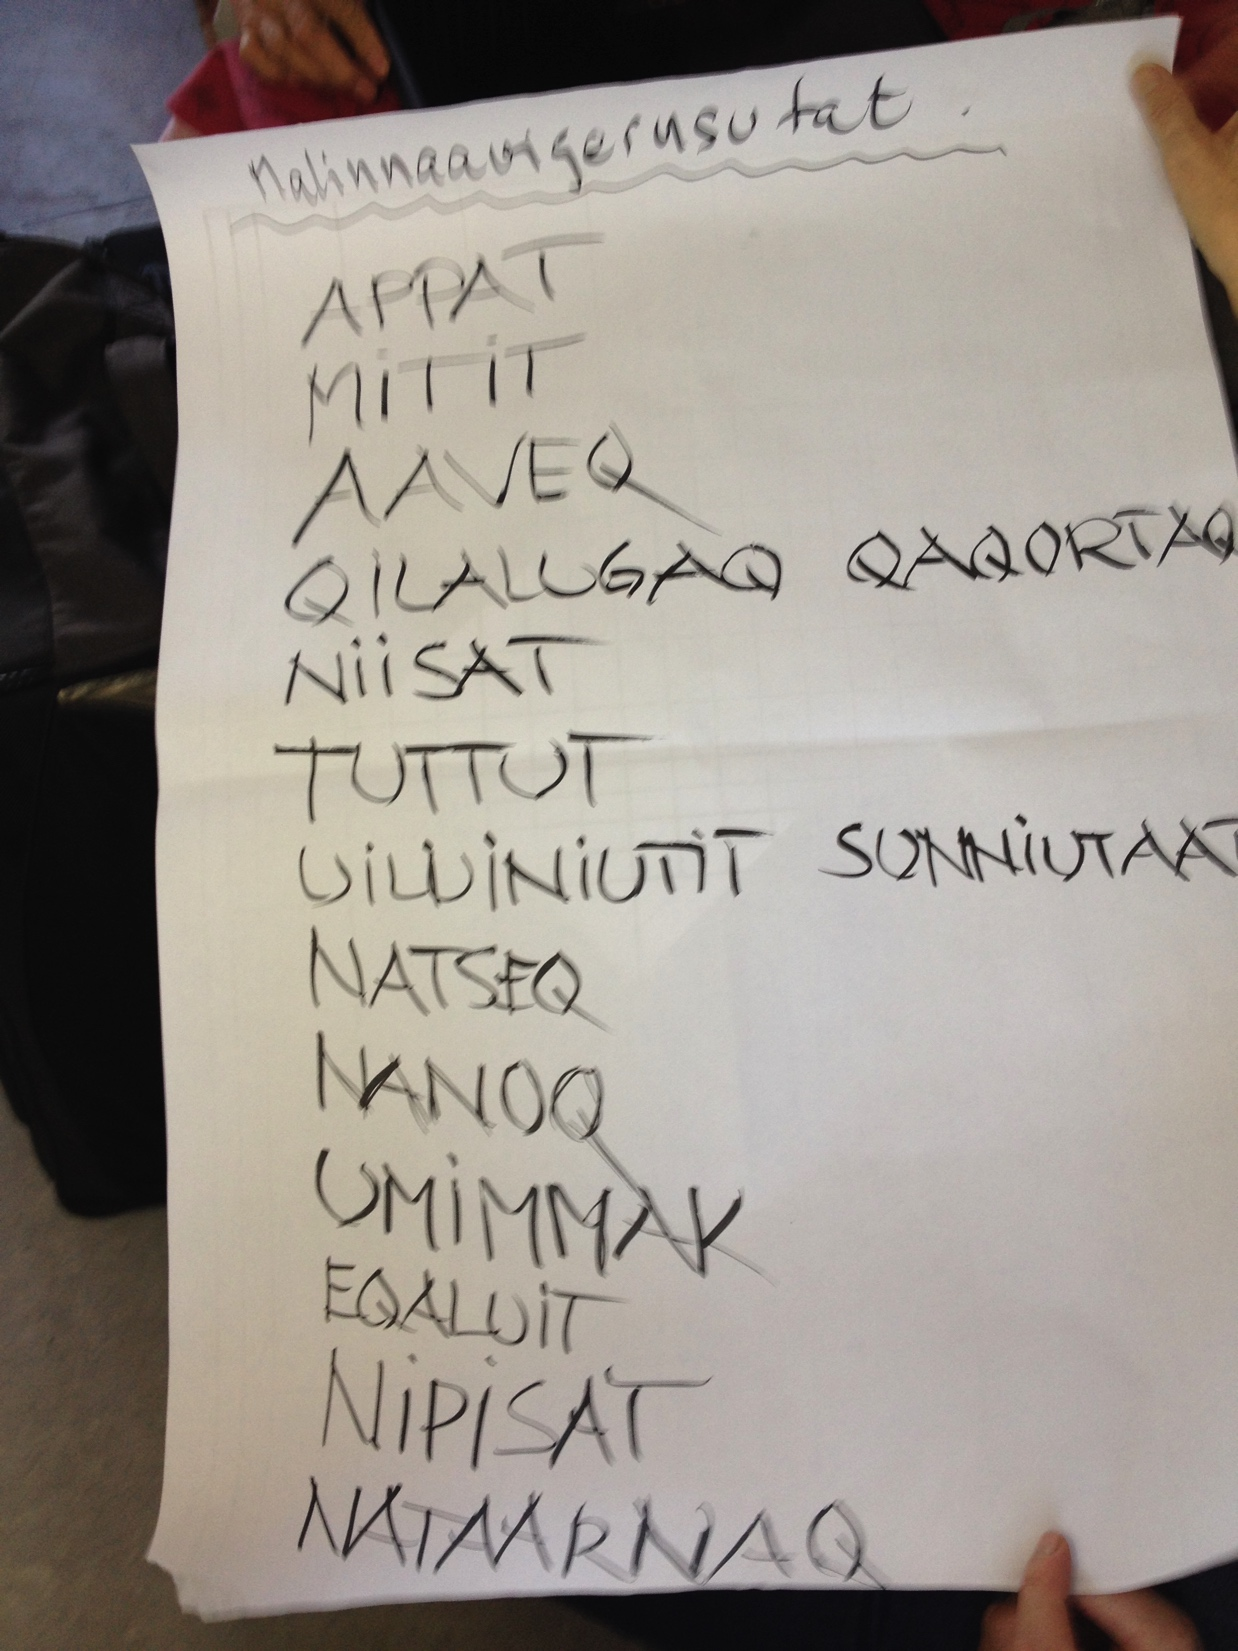 Malinnaavigerusutat.
APPAT
MiTiT
AAVEQ
QILALUGAQ QAQORTAQ
NiiSAT
TUTTUT
UiLUiNiUTiT SUNNiUTAAT
NATSEQ
NANOQ
UMiMMAK
EQALUiT
NiPiSAT
NATAARNAQ